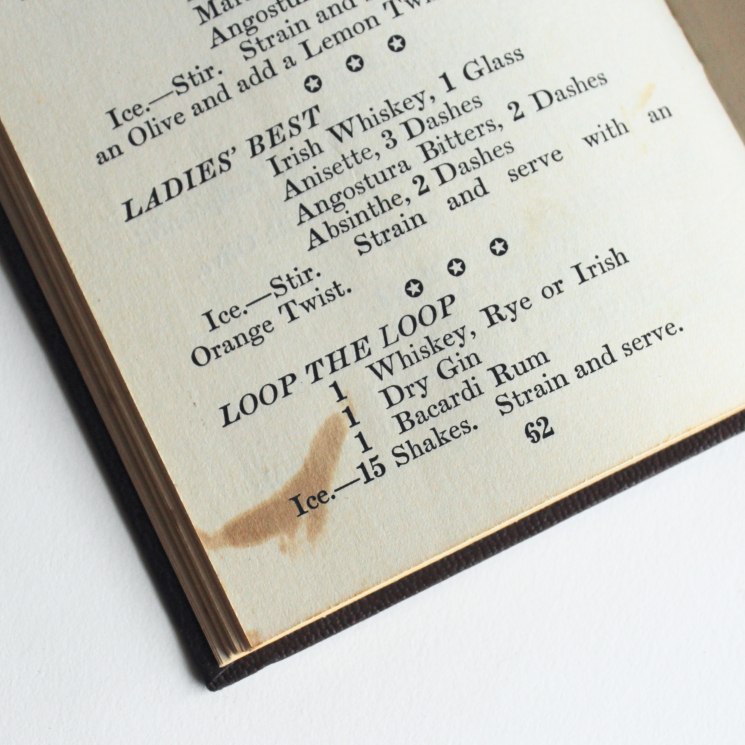 Angostu
Ice.—Stir. Strain and
an Olive and add a Lemon Tw
LADIES' BEST
Irish Whiskey, 1 Glass
Anisette, 3 Dashes
Angostura Bitters, 2 Dashes
Absinthe, 2 Dashes
Ice.—Stir. Strain and serve with an
Orange Twist.
LOOP THE LOOP
1 Whiskey, Rye or Irish
1 Dry Gin
1 Bacardi Rum
Ice.—15 Shakes. Strain and serve.
62